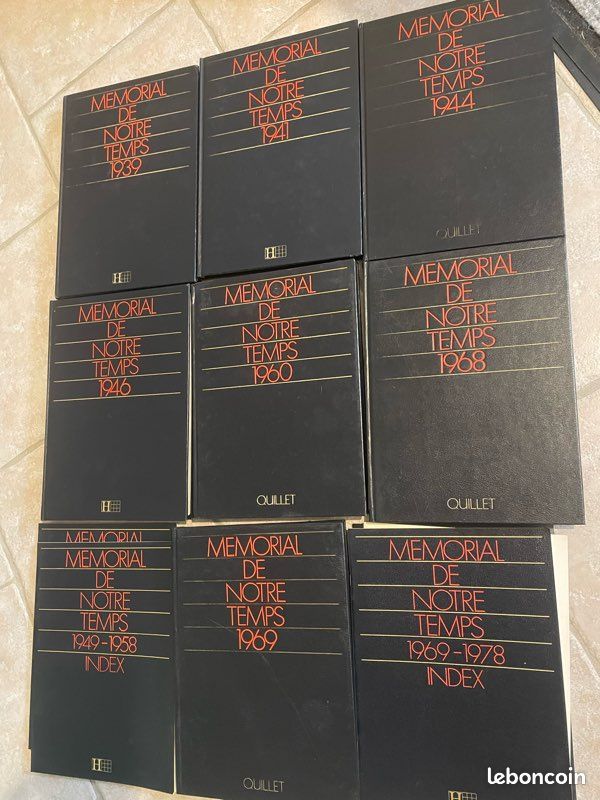 MEMORIAL
DE
NOTRE
TEMPS
1939
H
MEMORIAL
DE
NOTRE
TEMPS
1941
H
MEMORIAL
DE
NOTRE
TEMPS
1944
QUILLET
MEMORIAL
DE
NOTRE
TEMPS
1946
H
MEMORIAL
DE
NOTRE
TEMPS
1960
QUILLET
MEMORIAL
DE
NOTRE
TEMPS
1968
QUILLET
MEMORIAL
MEMORIAL
DE
NOTRE
TEMPS
1949-1958
INDEX
H
MEMORIAL
DE
NOTRE
TEMPS
1969
QUILLET
MEMORIAL
DE
NOTRE
TEMPS
1969-1978
INDEX
H
leboncoin